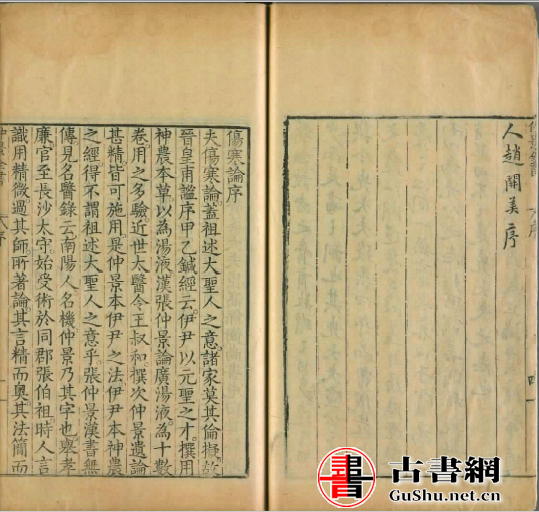 人趙開美序
傷寒論序
夫傷寒論蓋祖述大聖人之意諸家莫其倫擬故
晉皇甫謐序甲乙鍼經云伊尹以元聖之才撰用
神農本草以為湯液漢張仲景論廣湯液為十數
卷用之多驗近世太醫令王叔和撰次仲景遺論
甚精皆可施用是仲景本伊尹之法伊尹本神農
之經得不謂祖述大聖人之意乎張仲景漢書無
傳見名醫錄云南陽人名機仲景乃其字也舉孝
廉官至長沙太守始受術於同郡張伯祖時人言
識用精微過其師所著論其言精而奧其法簡而
書
古書網
GuShu.net.cn